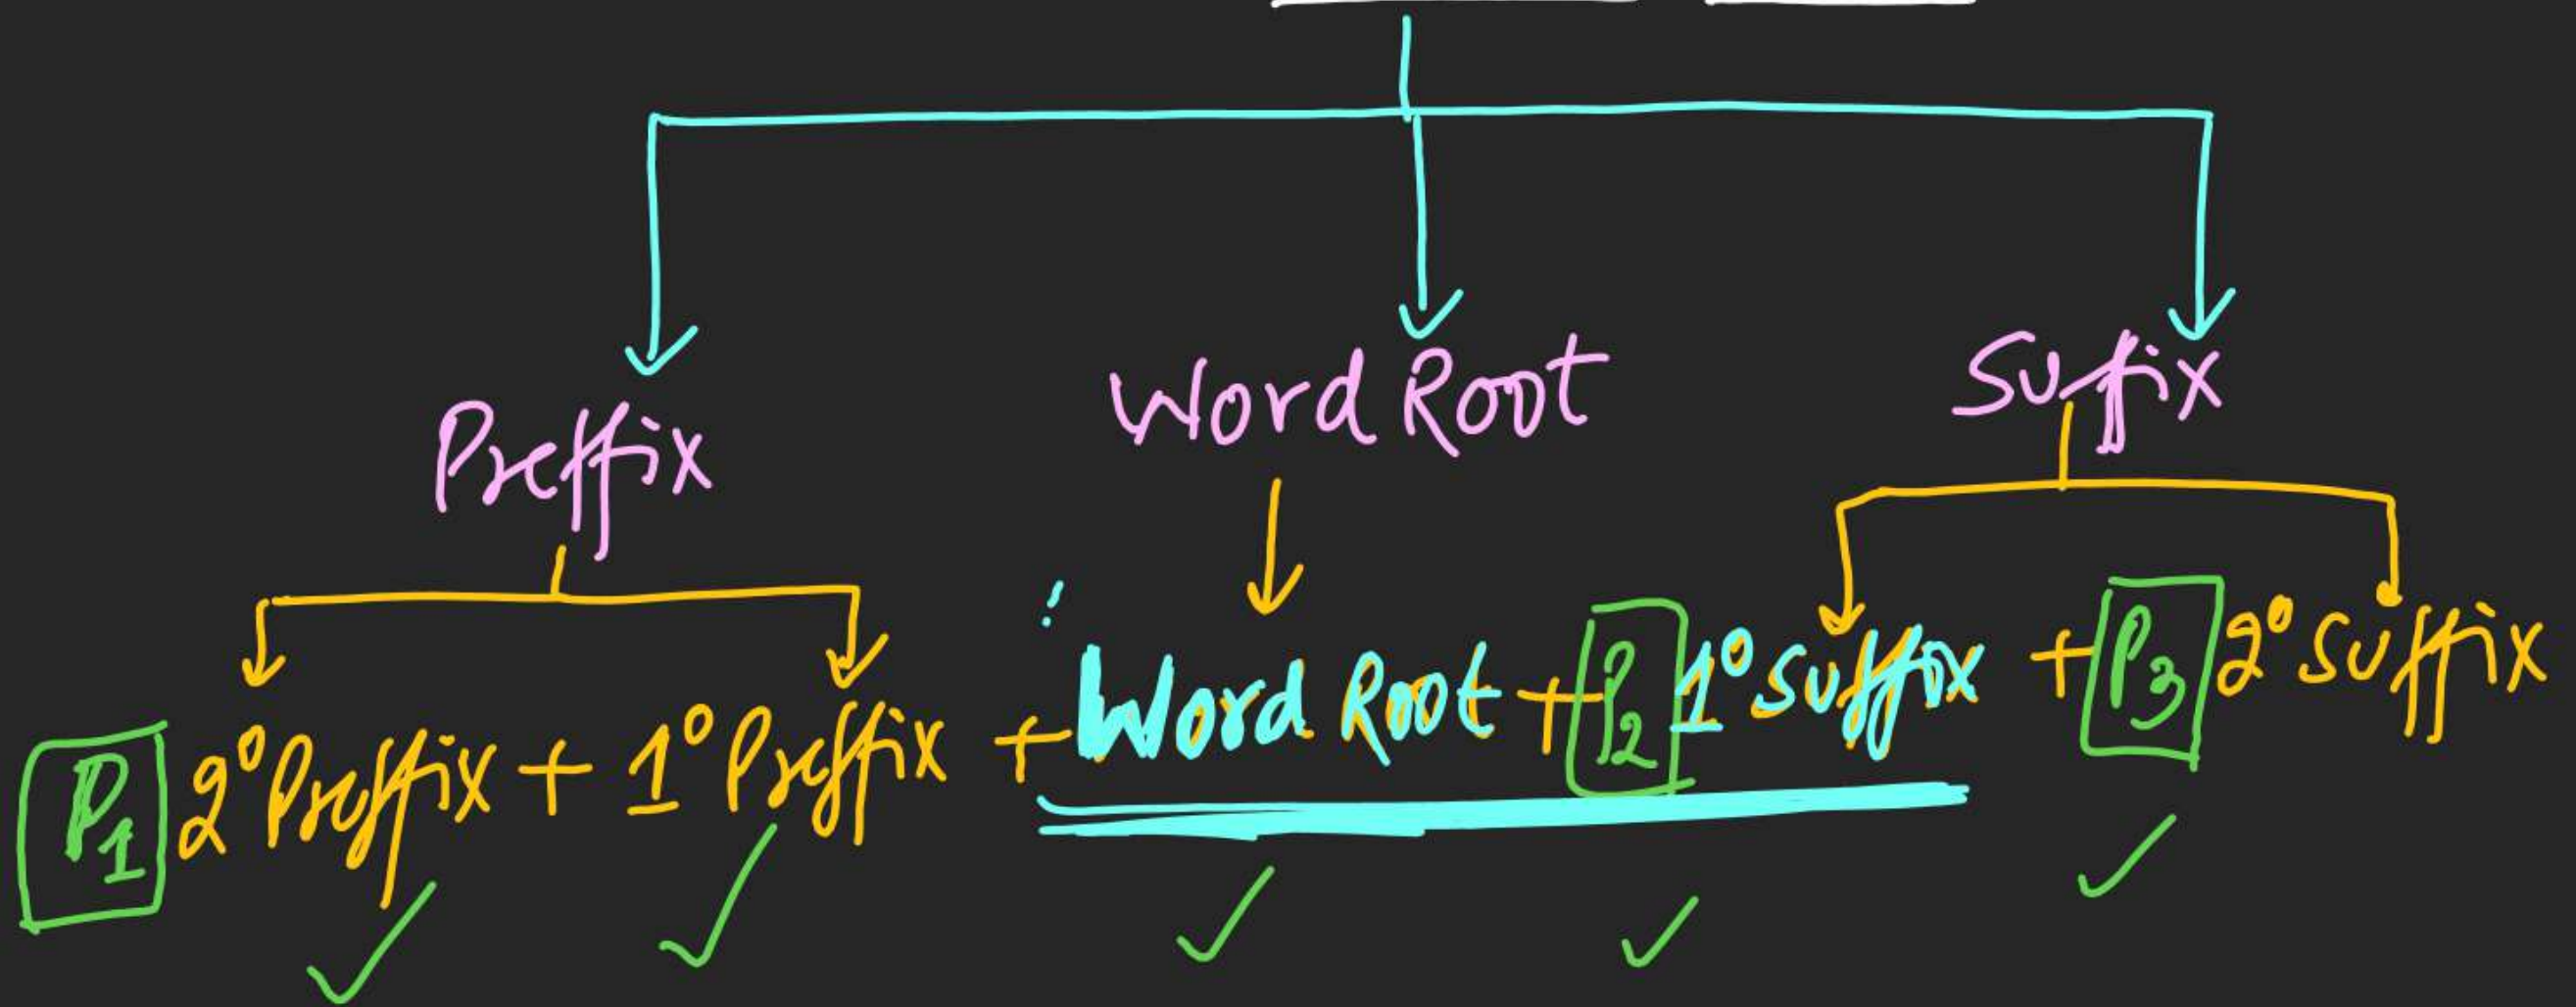 Preffix Word Root Suffix
P1 2° Preffix + 1° Preffix + Word Root + P2 1° Suffix + P3 2° Suffix